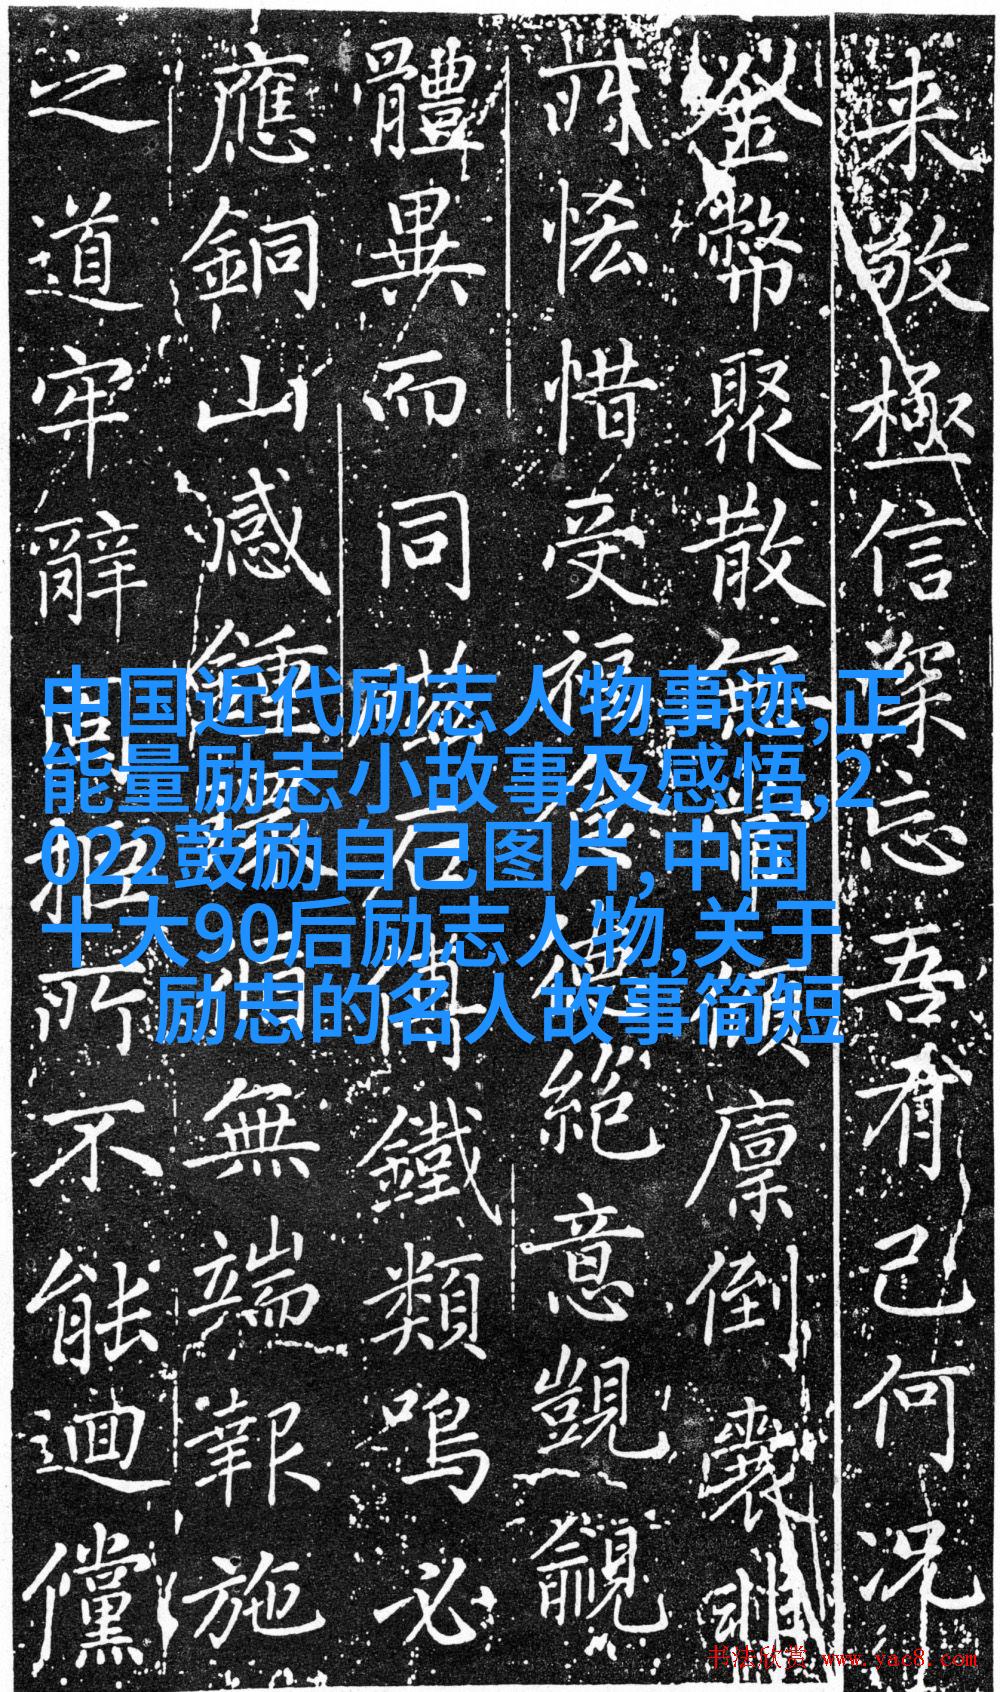 来敬極信深忘吾有己何况
幣聚散無廪倒
所恡惜受福絕意覬覦
體異而同鐵類鳴必
應銅山感鍾無端報施
之道牢辭拒所不能迴儻
中国近代励志人物事迹,正
能量励志小故事及感悟,2
022鼓励自己图片,中国
十大90后励志人物,关于
励志的名人故事简短
书法欣赏 www.yac8.com